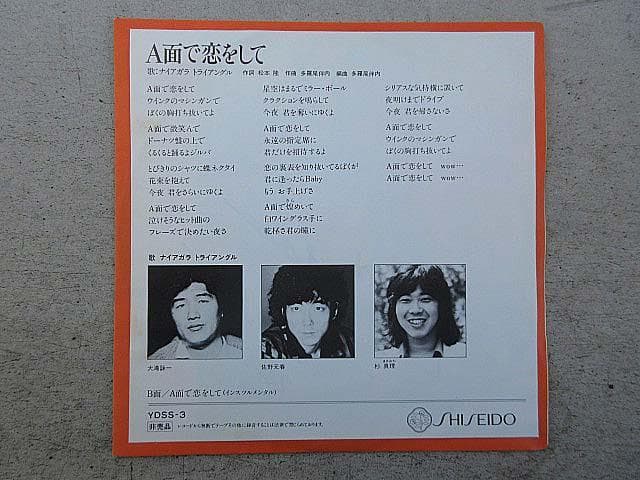 A面で恋をして
歌:ナイアガラ トライアングル 作詞 松本 隆 作曲 多羅尾伴内 編曲 多羅尾伴内
A面で恋をして
ウインクのマシンガンで
ぼくの胸打ち抜いてよ
A面で微笑んで
ドーナツ盤の上で
くるくると踊るよジルバ
とびきりのシャツに蝶ネクタイ
花束を抱えて
今夜 君をさらいにゆくよ
A面で恋をして
泣けそうなヒット曲の
フレーズで決めたい夜さ
星空はまるでミラー・ボール
クラクションを鳴らして
今夜 君を奪いにゆくよ
A面で恋をして
永遠の指定席に
君だけを招待するよ
恋の裏表を知り抜いてるぼくが
君に逢ったらBaby
もう お手上げさ
A面で煌めいて
白ワイングラス手に
乾杯さ君の瞳に
シリアスな気持横に置いて
夜明けまでドライブ
今夜 君を帰さないさ
A面で恋をして
ウインクのマシンガンで
ぼくの胸打ち抜いてよ
A面で恋をして wow…
A面で恋をして wow…
歌 ナイアガラ トライアングル
大滝詠一
佐野元春
杉 真理
B面/A面で恋をして(インストルメンタル)
YDSS-3
非売品
レコードから無断でテープその他に録音することは法律で禁じられております。
SHISEIDO